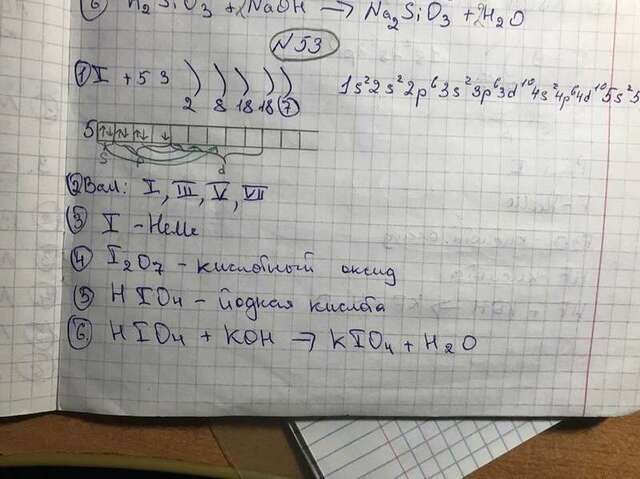 ⑥ H₂SiO₃ + 2NaOH → Na₂SiO₃ + 2H₂O
№53
① I +53 ) ) ) ) ) 1s²2s²2p⁶3s²3p⁶3d¹⁰4s²4p⁶4d¹⁰5s²5
2 8 18 18 7
5 ↑↓ ↑↓ ↑↓ ↓
s p d
② Вал: I, III, V, VII
③ I - НеМе
④ I₂O₇ - кислотный оксид
⑤ HIO₄ - йодная кислота
⑥ HIO₄ + KOH → KIO₄ + H₂O